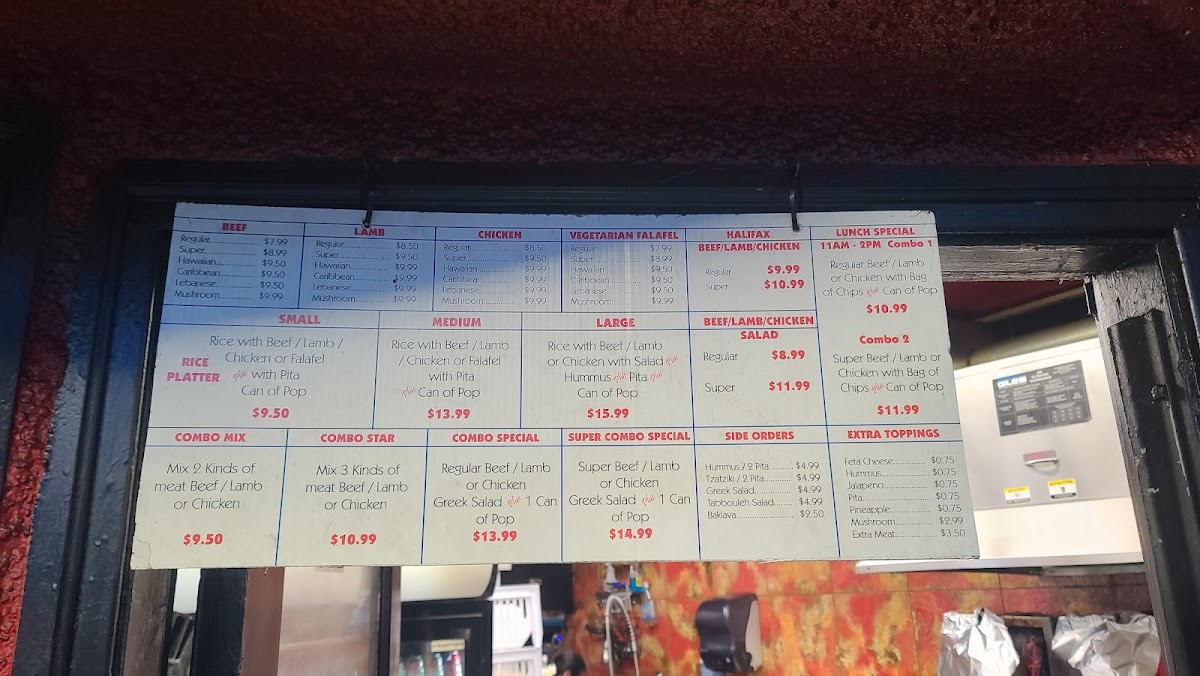 BEEF
Regular............ $7.99
Super............ $8.99
Hawaiian............ $9.50
Caribbean............ $9.50
Lebanese............ $9.50
Mushroom............ $9.99
LAMB
Regular............ $8.50
Super............ $9.50
Hawaiian............ $9.99
Caribbean............ $9.99
Lebanese............ $9.99
Mushroom............ $9.99
CHICKEN
Regular............ $8.50
Super............ $9.50
Hawaiian............ $9.99
Caribbea............ $9.99
Lebanese............ $9.99
Mushroom............ $9.99
VEGETARIAN FALAFEL
Regular............ $7.99
Super............ $8.99
Hawaiian............ $9.50
Caribbean............ $9.50
Lebanese............ $9.50
Mushroom............ $9.99
HALIFAX
BEEF/LAMB/CHICKEN
Regular $9.99
Super $10.99
LUNCH SPECIAL
11AM - 2PM Combo 1
Regular Beef / Lamb
or Chicken with Bag
of Chips plus Can of Pop
$10.99
Combo 2
Super Beef / Lamb or
Chicken with Bag of
Chips plus Can of Pop
$11.99
RICE
PLATTER
SMALL
Rice with Beef / Lamb /
Chicken or Falafel
plus with Pita
Can of Pop
$9.50
MEDIUM
Rice with Beef / Lamb
/ Chicken or Falafel
with Pita
plus Can of Pop
$13.99
LARGE
Rice with Beef / Lamb
or Chicken with Salad plus
Hummus plus Pita plus
Can of Pop
$15.99
BEEF/LAMB/CHICKEN
SALAD
Regular $8.99
Super $11.99
COMBO MIX
Mix 2 Kinds of
meat Beef / Lamb
or Chicken
$9.50
COMBO STAR
Mix 3 Kinds of
meat Beef / Lamb
or Chicken
$10.99
COMBO SPECIAL
Regular Beef / Lamb
or Chicken
Greek Salad plus 1 Can
of Pop
$13.99
SUPER COMBO SPECIAL
Super Beef / Lamb
or Chicken
Greek Salad plus 1 Can
of Pop
$14.99
SIDE ORDERS
Hummus / 2 Pita............ $4.99
Tzatziki / 2 Pita............ $4.99
Greek Salad............ $4.99
Tabbouleh Salad............ $4.99
Baklava............ $2.50
EXTRA TOPPINGS
Feta Cheese............ $0.75
Hummus............ $0.75
Jalapeno............ $0.75
Pita............ $0.75
Pineapple............ $0.75
Mushroom............ $2.99
Extra Meat............ $3.50
GILES